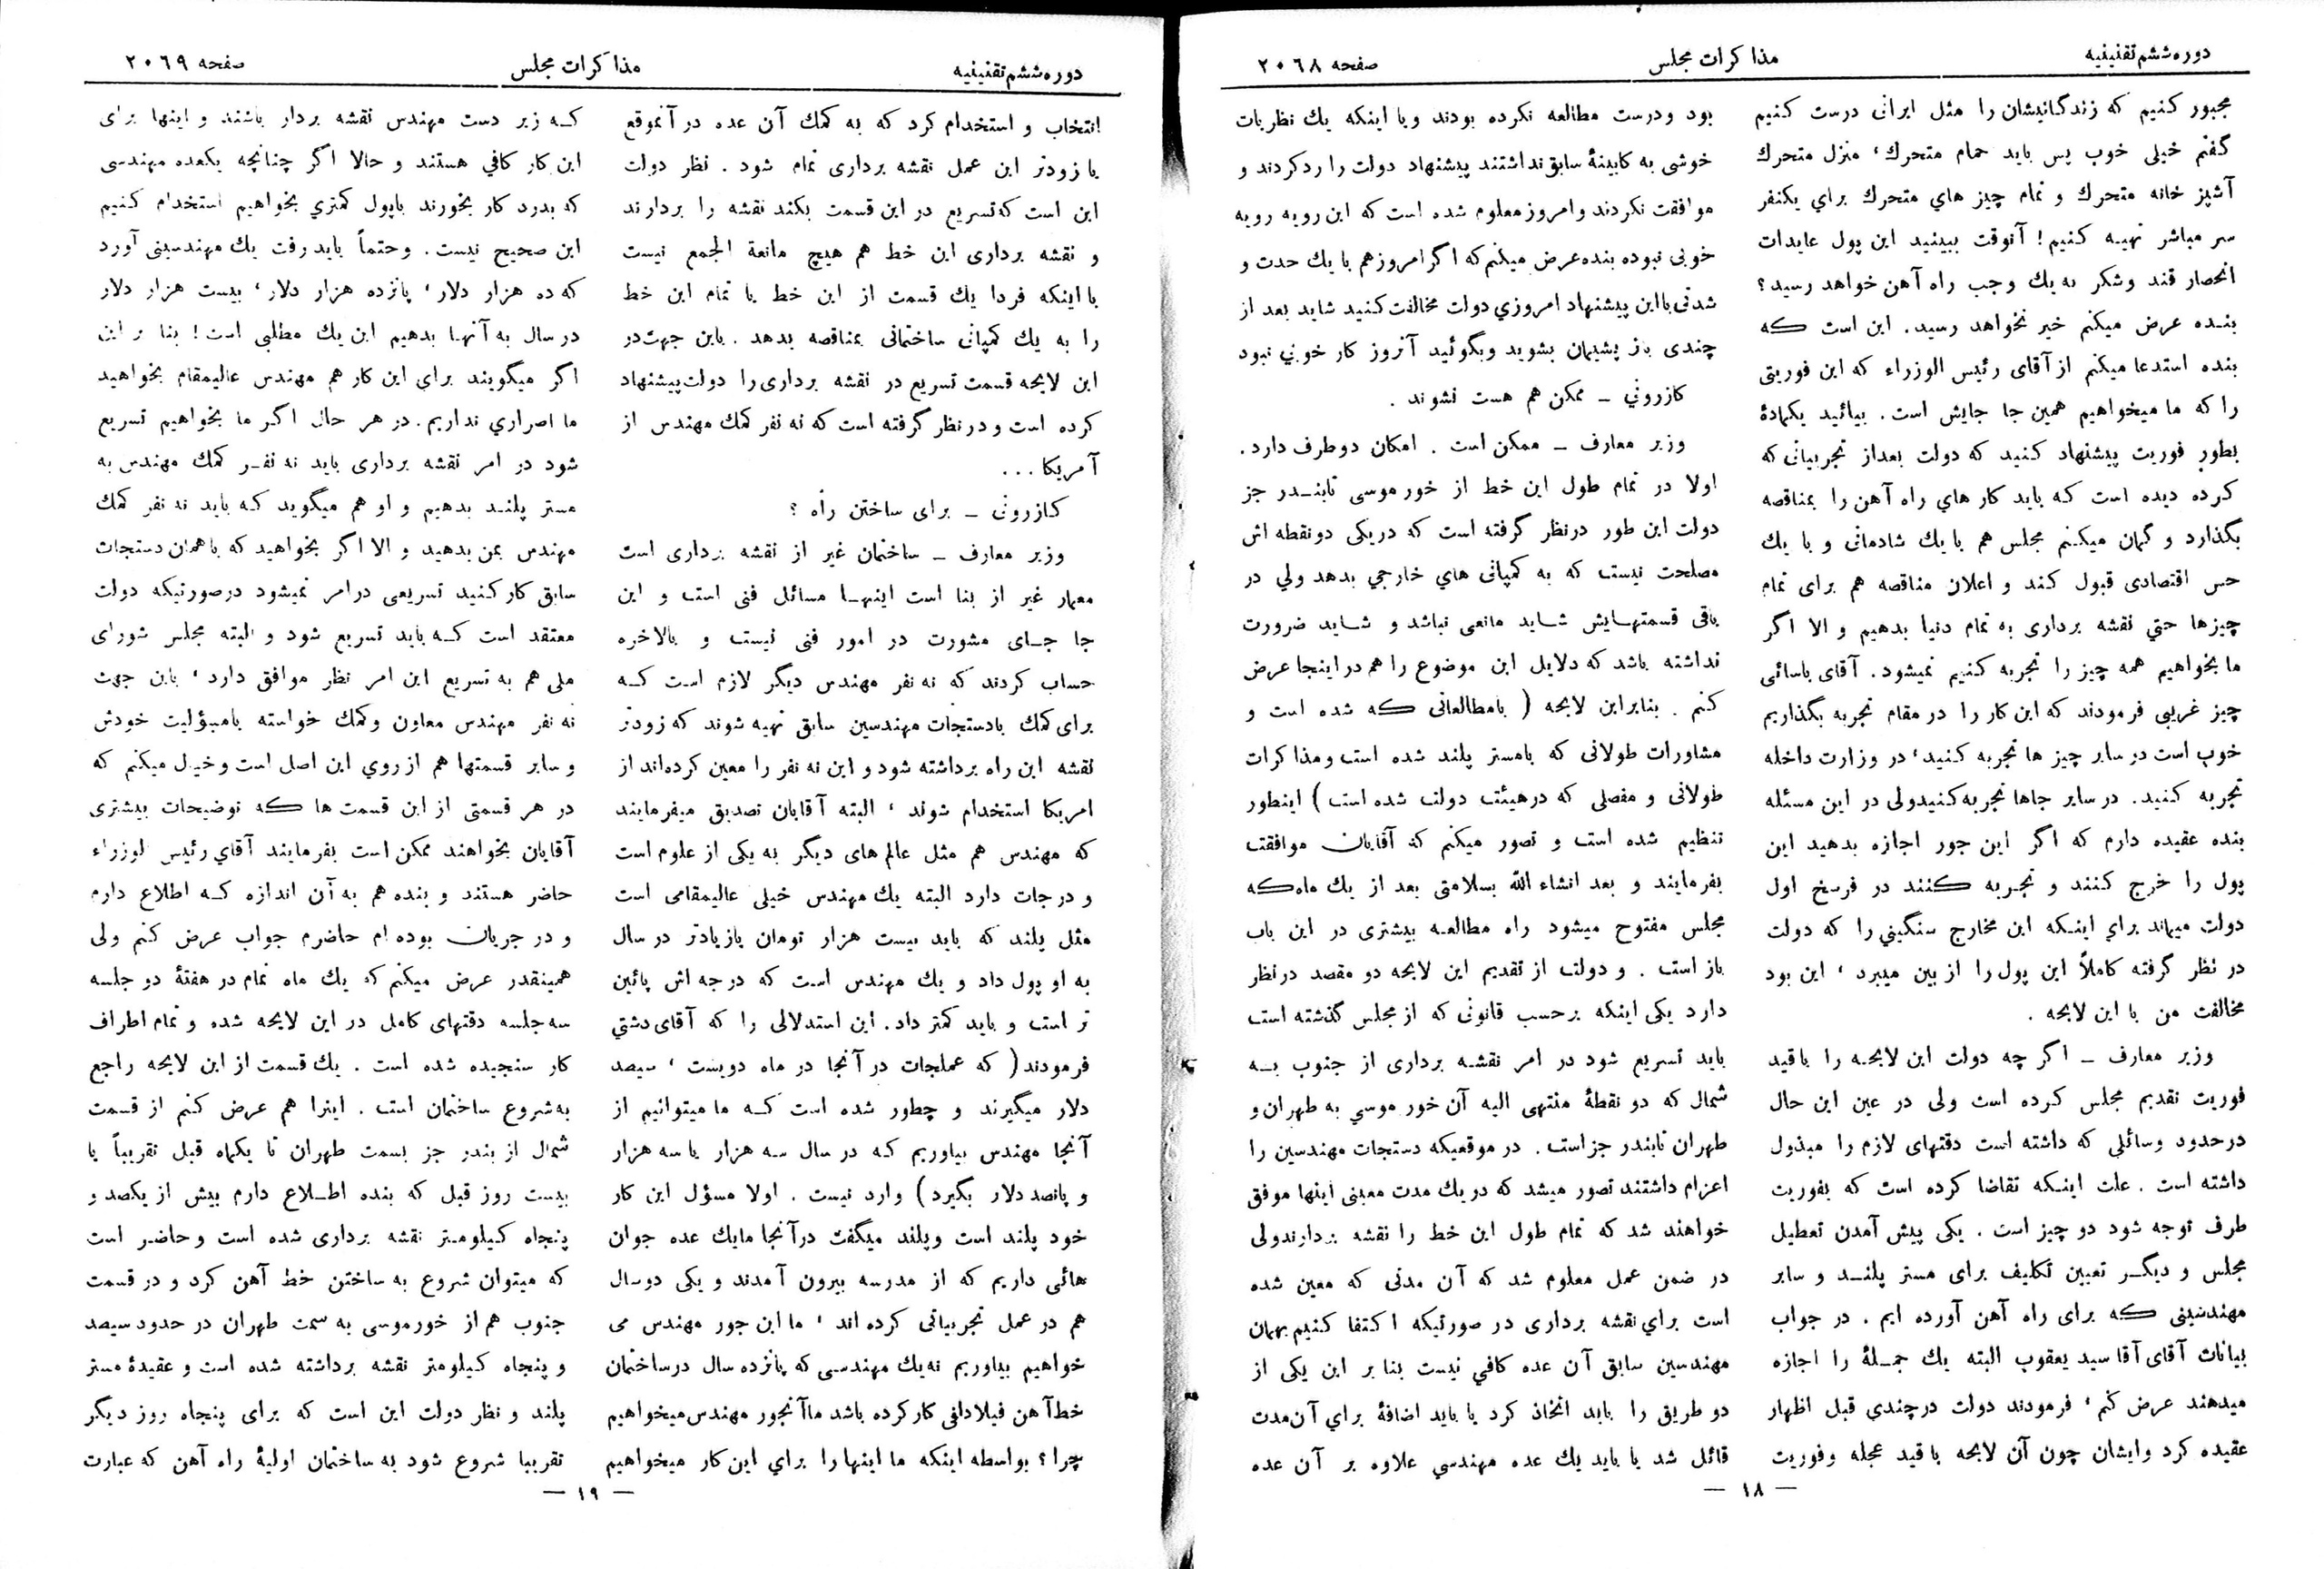 دوره ششم تقنینیه
مذاکرات مجلس
صفحه ۲۰۶۸
مجبور کنیم که زندگانیشان را مثل ایرانی درست کنیم
گفتم خیلی خوب پس باید حمام متحرك، منزل متحرك
آشپز خانه متحرك و تمام چیز های متحرك برای یکنفر
سر مباشر تهیه کنیم! آنوقت ببینید این پول عایدات
انحصار قند وشکر به یك وجب راه آهن خواهد رسید؟
بنده عرض میکنم خیر نخواهد رسید. این است که
بنده استدعا میکنم از آقای رئیس الوزراء که این فوریتی
را که ما میخواهیم همین جا جایش است. بیائید یکمادهٔ
بطور فوریت پیشنهاد کنید که دولت بعداز تجربیاتی که
کرده دیده است که باید کار های راه آهن را بمناقصه
بگذارد و گمان میکنم مجلس هم با یك شادمانی و با یك
حس اقتصادی قبول کند و اعلان مناقصه هم برای تمام
چیزها حتی نقشه برداری به تمام دنیا بدهیم و الا اگر
ما بخواهیم همه چیز را تجربه کنیم نمیشود. آقای یاسائی
چیز غریبی فرمودند که این کار را در مقام تجربه بگذاریم
خوب است در سایر چیز ها تجربه کنید، در وزارت داخله
تجربه کنید. در سایر جاها تجربه کنیدولی در این مسئله
بنده عقیده دارم که اگر این جور اجازه بدهید این
پول را خرج کنند و تجربه کنند در فرسخ اول
دولت میماند برای اینکه این مخارج سنگینی را که دولت
در نظر گرفته کاملاً این پول را از بین میبرد، این بود
مخالفت من با این لایحه.
وزیر معارف ـ اگر چه دولت این لایحه را باقید
فوریت تقدیم مجلس کرده است ولی در عین این حال
درحدود وسائلی که داشته است دقتهای لازم را مبذول
داشته است. علت اینکه تقاضا کرده است که بفوریت
طرف توجه شود دو چیز است. یکی پیش آمدن تعطیل
مجلس و دیگر تعیین تکلیف برای مستر پلند و سایر
مهندسینی که برای راه آهن آورده ایم. در جواب
بیانات آقای آقا سید یعقوب البته یك جملهٔ را اجازه
میدهند عرض کنم، فرمودند دولت درچندی قبل اظهار
عقیده کرد وایشان چون آن لایحه باقید عجله وفوریت
بود ودرست مطالعه نکرده بودند ویا اینکه یك نظریات
خوشی به کابینهٔ سابق نداشتند پیشنهاد دولت را رد کردند و
موافقت نکردند وامروز معلوم شده است که این رویه رویه
خوبی نبوده بنده عرض میکنم که اگر امروز هم با یك حدت و
شدتی بااین پیشنهاد امروزی دولت مخالفت کنید شاید بعد از
چندی باز پشیمان بشوید وبگوئید آنروز کار خوبی نبود
کازرونی ـ ممکن هم هست نشوند.
وزیر معارف ـ ممکن است. امکان دوطرف دارد.
اولا در تمام طول این خط از خور موسی تابندر جز
دولت این طور درنظر گرفته است که در یکی دو نقطه اش
مصلحت نیست که به کمپانی های خارجی بدهد ولی در
باقی قسمتهایش شاید مانعی نباشد و شاید ضرورت
نداشته باشد که دلایل این موضوع را هم در اینجا عرض
کنم. بنابراین لایحه (بامطالعاتی که شده است و
مشاورات طولانی که بامستر پلند شده است ومذاکرات
طولانی و مفصلی که درهیئت دولت شده است) اینطور
تنظیم شده است و تصور میکنم که آقایان موافقت
بفرمایند و بعد انشاء الله بسلامتی بعد از یك ماه که
مجلس مفتوح میشود راه مطالعه بیشتری در این باب
باز است. و دولت از تقدیم این لایحه دو مقصد درنظر
دارد یکی اینکه برحسب قانونی که از مجلس گذشته است
باید تسریع شود در امر نقشه برداری از جنوب به
شمال که دو نقطهٔ منتهی الیه آن خور موسی به طهران و
طهران تابندر جز است. در موقعیکه دستجات مهندسین را
اعزام داشتند تصور میشد که در یك مدت معینی اینها موفق
خواهند شد که تمام طول این خط را نقشه بردارندولی
در ضمن عمل معلوم شد که آن مدتی که معین شده
است برای نقشه برداری در صورتیکه اکتفا کنیم بهمان
مهندسین سابق آن عده کافی نیست بنا بر این یکی از
دو طریق را باید اتخاذ کرد یا باید اضافهٔ برای آن مدت
قائل شد یا باید یك عده مهندسی علاوه بر آن عده
— ۱۸ —
دوره ششم تقنینیه
مذاکرات مجلس
صفحه ۲۰۶۹
انتخاب و استخدام کرد که به کمك آن عده در آنموقع
یا زودتر این عمل نقشه برداری تمام شود. نظر دولت
این است که تسریع در این قسمت بکند نقشه را بردارند
و نقشه برداری این خط هم هیچ مانعة الجمع نیست
با اینکه فردا یك قسمت از این خط یا تمام این خط
را به یك کمپانی ساختمانی بمناقصه بدهد. باین جهت در
این لایحه قسمت تسریع در نقشه برداری را دولت پیشنهاد
کرده است و در نظر گرفته است که نه نفر کمك مهندس از
آمریکا...
کازرونی ـ برای ساختن راه؟
وزیر معارف ـ ساختمان غیر از نقشه برداری است
معمار غیر از بنا است اینها مسائل فنی است و این
جا جای مشورت در امور فنی نیست و بالاخره
حساب کردند که نه نفر مهندس دیگر لازم است که
برای کمك بادستجات مهندسین سابق تهیه شوند که زودتر
نقشه این راه برداشته شود و این نه نفر را معین کرده‌اند از
امریکا استخدام شوند، البته آقایان تصدیق میفرمایند
که مهندس هم مثل عالم های دیگر به یکی از علوم است
و درجات دارد البته یك مهندس خیلی عالیمقامی است
مثل پلند که باید بیست هزار تومان یازیادتر در سال
به او پول داد و یك مهندس است که درجه اش پائین
تر است و باید کمتر داد. این استدلالی را که آقای دشتی
فرمودند (که عملجات در آنجا در ماه دویست، سیصد
دلار میگیرند و چطور شده است که ما میتوانیم از
آنجا مهندس بیاوریم که در سال سه هزار یا سه هزار
و پانصد دلار بگیرد) وارد نیست. اولا مسؤل این کار
خود پلند است وپلند میگفت درآنجا مایك عده جوان
هائی داریم که از مدرسه بیرون آمدند و یکی دوسال
هم در عمل تجربیاتی کرده اند، ما این جور مهندس می
خواهیم بیاوریم نه یك مهندسی که پانزده سال درساختمان
خط آهن فیلادلفی کار کرده باشد ماآنجور مهندس میخواهیم
چرا؟ بواسطه اینکه ما اینها را برای این کار میخواهیم
که زیر دست مهندس نقشه بردار باشند و اینها برای
این کار کافی هستند و حالا اگر چنانچه یکعده مهندسی
که بدرد کار بخورند باپول کمتری بخواهیم استخدام کنیم
این صحیح نیست. وحتماً باید رفت یك مهندسینی آورد
که ده هزار دلار، پانزده هزار دلار، بیست هزار دلار
در سال به آنها بدهیم این یك مطلبی است! بنا بر این
اگر میگویند برای این کار هم مهندس عالیمقام بخواهید
ما اصراری نداریم. در هر حال اگر ما بخواهیم تسریع
شود در امر نقشه برداری باید نه نفر کمك مهندس به
مستر پلند بدهیم و او هم میگوید که باید نه نفر کمك
مهندس بمن بدهید و الا اگر بخواهید که باهمان دستجات
سابق کار کنید تسریعی درامر نمیشود درصورتیکه دولت
معتقد است که باید تسریع شود و البته مجلس شورای
ملی هم به تسریع این امر نظر موافق دارد، باین جهت
نه نفر مهندس معاون وکمك خواسته بامسؤلیت خودش
و سایر قسمتها هم از روی این اصل است وخیال میکنم که
در هر قسمتی از این قسمت ها که توضیحات بیشتری
آقایان بخواهند ممکن است بفرمایند آقای رئیس الوزراء
حاضر هستند و بنده هم به آن اندازه که اطلاع دارم
و در جریان بوده ام حاضرم جواب عرض کنم ولی
همینقدر عرض میکنم که یك ماه تمام در هفتهٔ دو جلسه
سه جلسه دقتهای کامل در این لایحه شده و تمام اطراف
کار سنجیده شده است. یك قسمت از این لایحه راجع
به شروع ساختمان است. اینرا هم عرض کنم از قسمت
شمال از بندر جز بسمت طهران تا یکماه قبل تقریباً یا
بیست روز قبل که بنده اطلاع دارم بیش از یکصد و
پنجاه کیلومتر نقشه برداری شده است وحاضر است
که میتوان شروع به ساختن خط آهن کرد و در قسمت
جنوب هم از خورموسی به سمت طهران در حدود سیصد
و پنجاه کیلومتر نقشه برداشته شده است و عقیدهٔ مستر
پلند و نظر دولت این است که برای پنجاه روز دیگر
تقریبا شروع شود به ساختمان اولیهٔ راه آهن که عبارت
— ۱۹ —